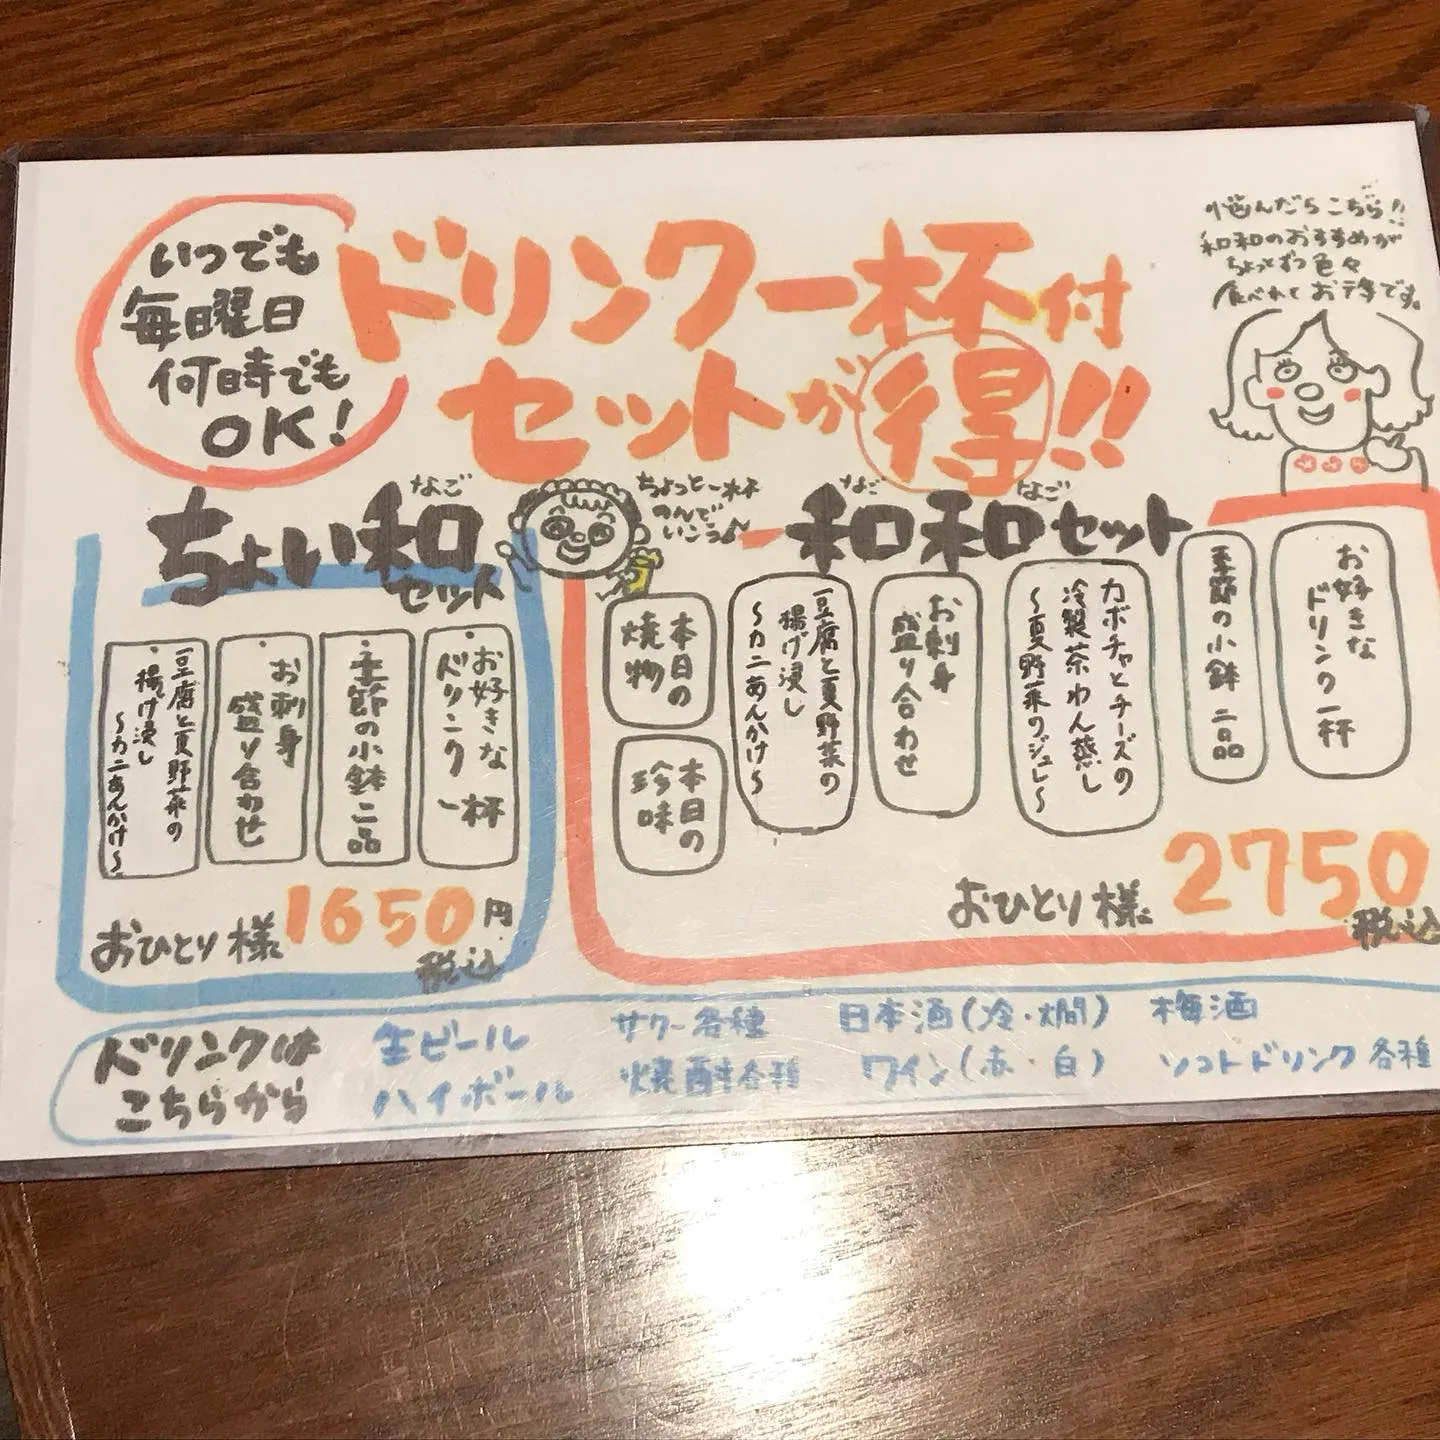 いつでも
毎日曜日
何時でも
OK!
ドリンク一杯付
セットが得!!
悩んだらこちら!!
和和のおすすめが
ちょっとずつ色々
食べれてお得です。
なご
ちょい和
セット
お好きな
ドリンク一杯
・季節の小鉢二品
・お刺身
盛り合わせ
・豆腐と夏野菜の
揚げ浸し
〜カニあんかけ〜
おひとり様 1650円
税込
ちょっと一杯
のんで
いこう♪
なご なご
和和セット
お好きな
ドリンク一杯
季節の小鉢 二品
カボチャとチーズの
冷製茶わん蒸し
〜夏野菜のジュレ〜
お刺身
盛り合わせ
豆腐と夏野菜の
揚げ浸し
〜カニあんかけ〜
本日の
焼物
本日の
珍味
おひとり様 2750
税込
ドリンクは
こちらから
生ビール サワー各種 日本酒(冷・燗) 梅酒
ハイボール 焼酎各種 ワイン(赤・白) ソフトドリンク各種